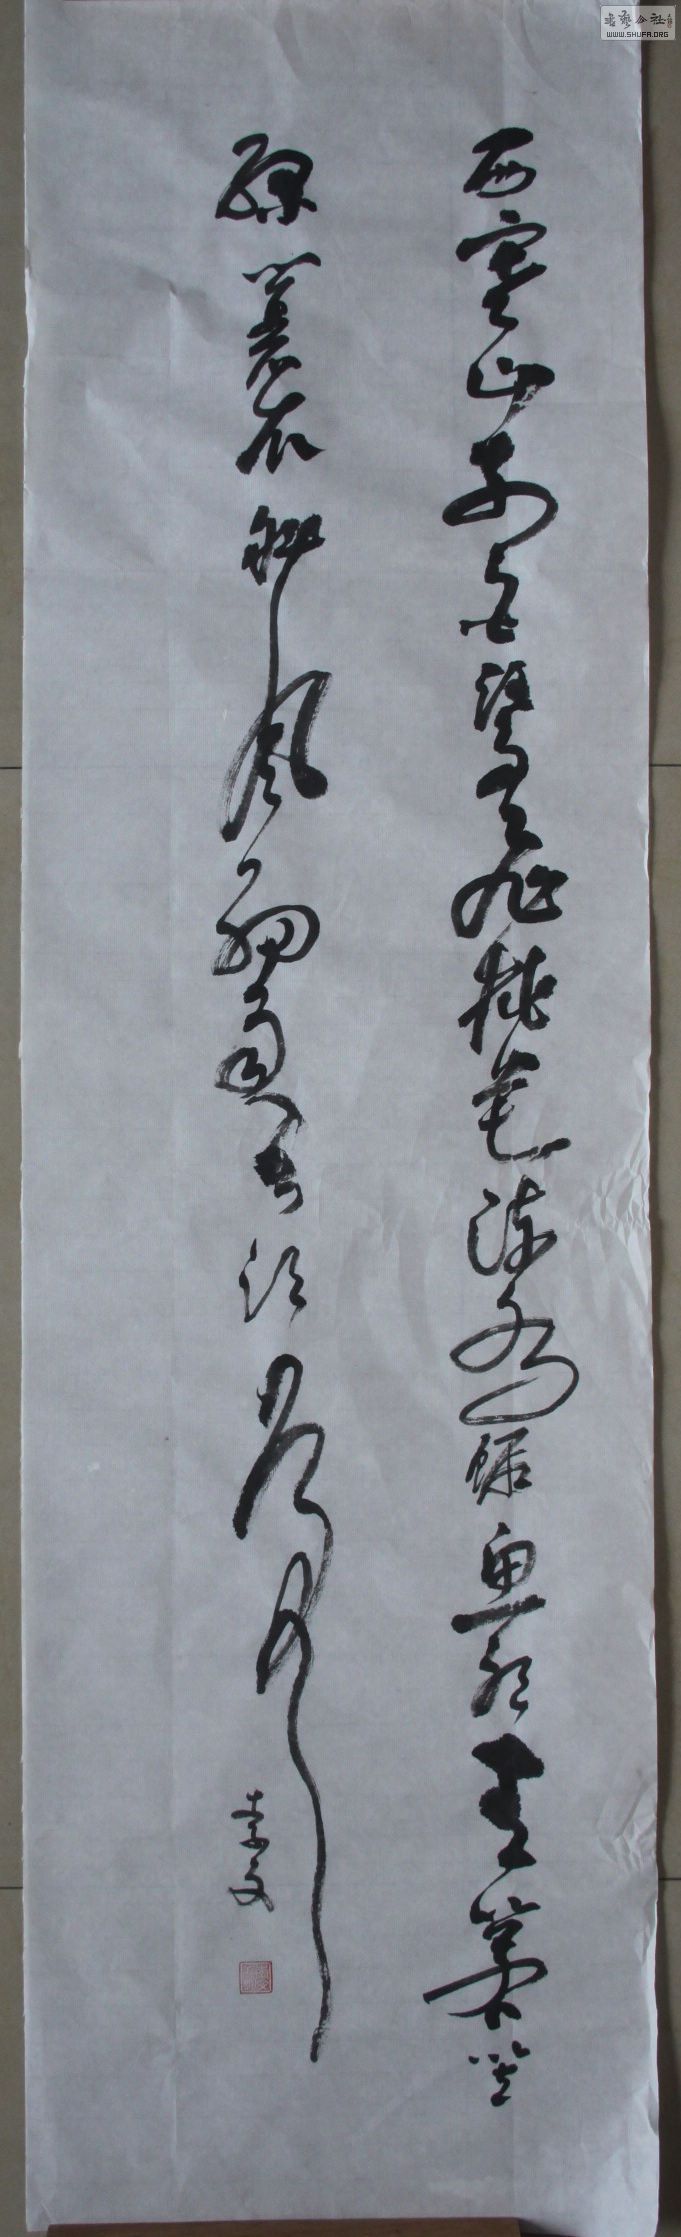 西塞山前白鹭飞桃花流水鳜鱼肥青箬笠
绿蓑衣斜风细雨不须归
李文
书艺公社
WWW.SHUFA.ORG